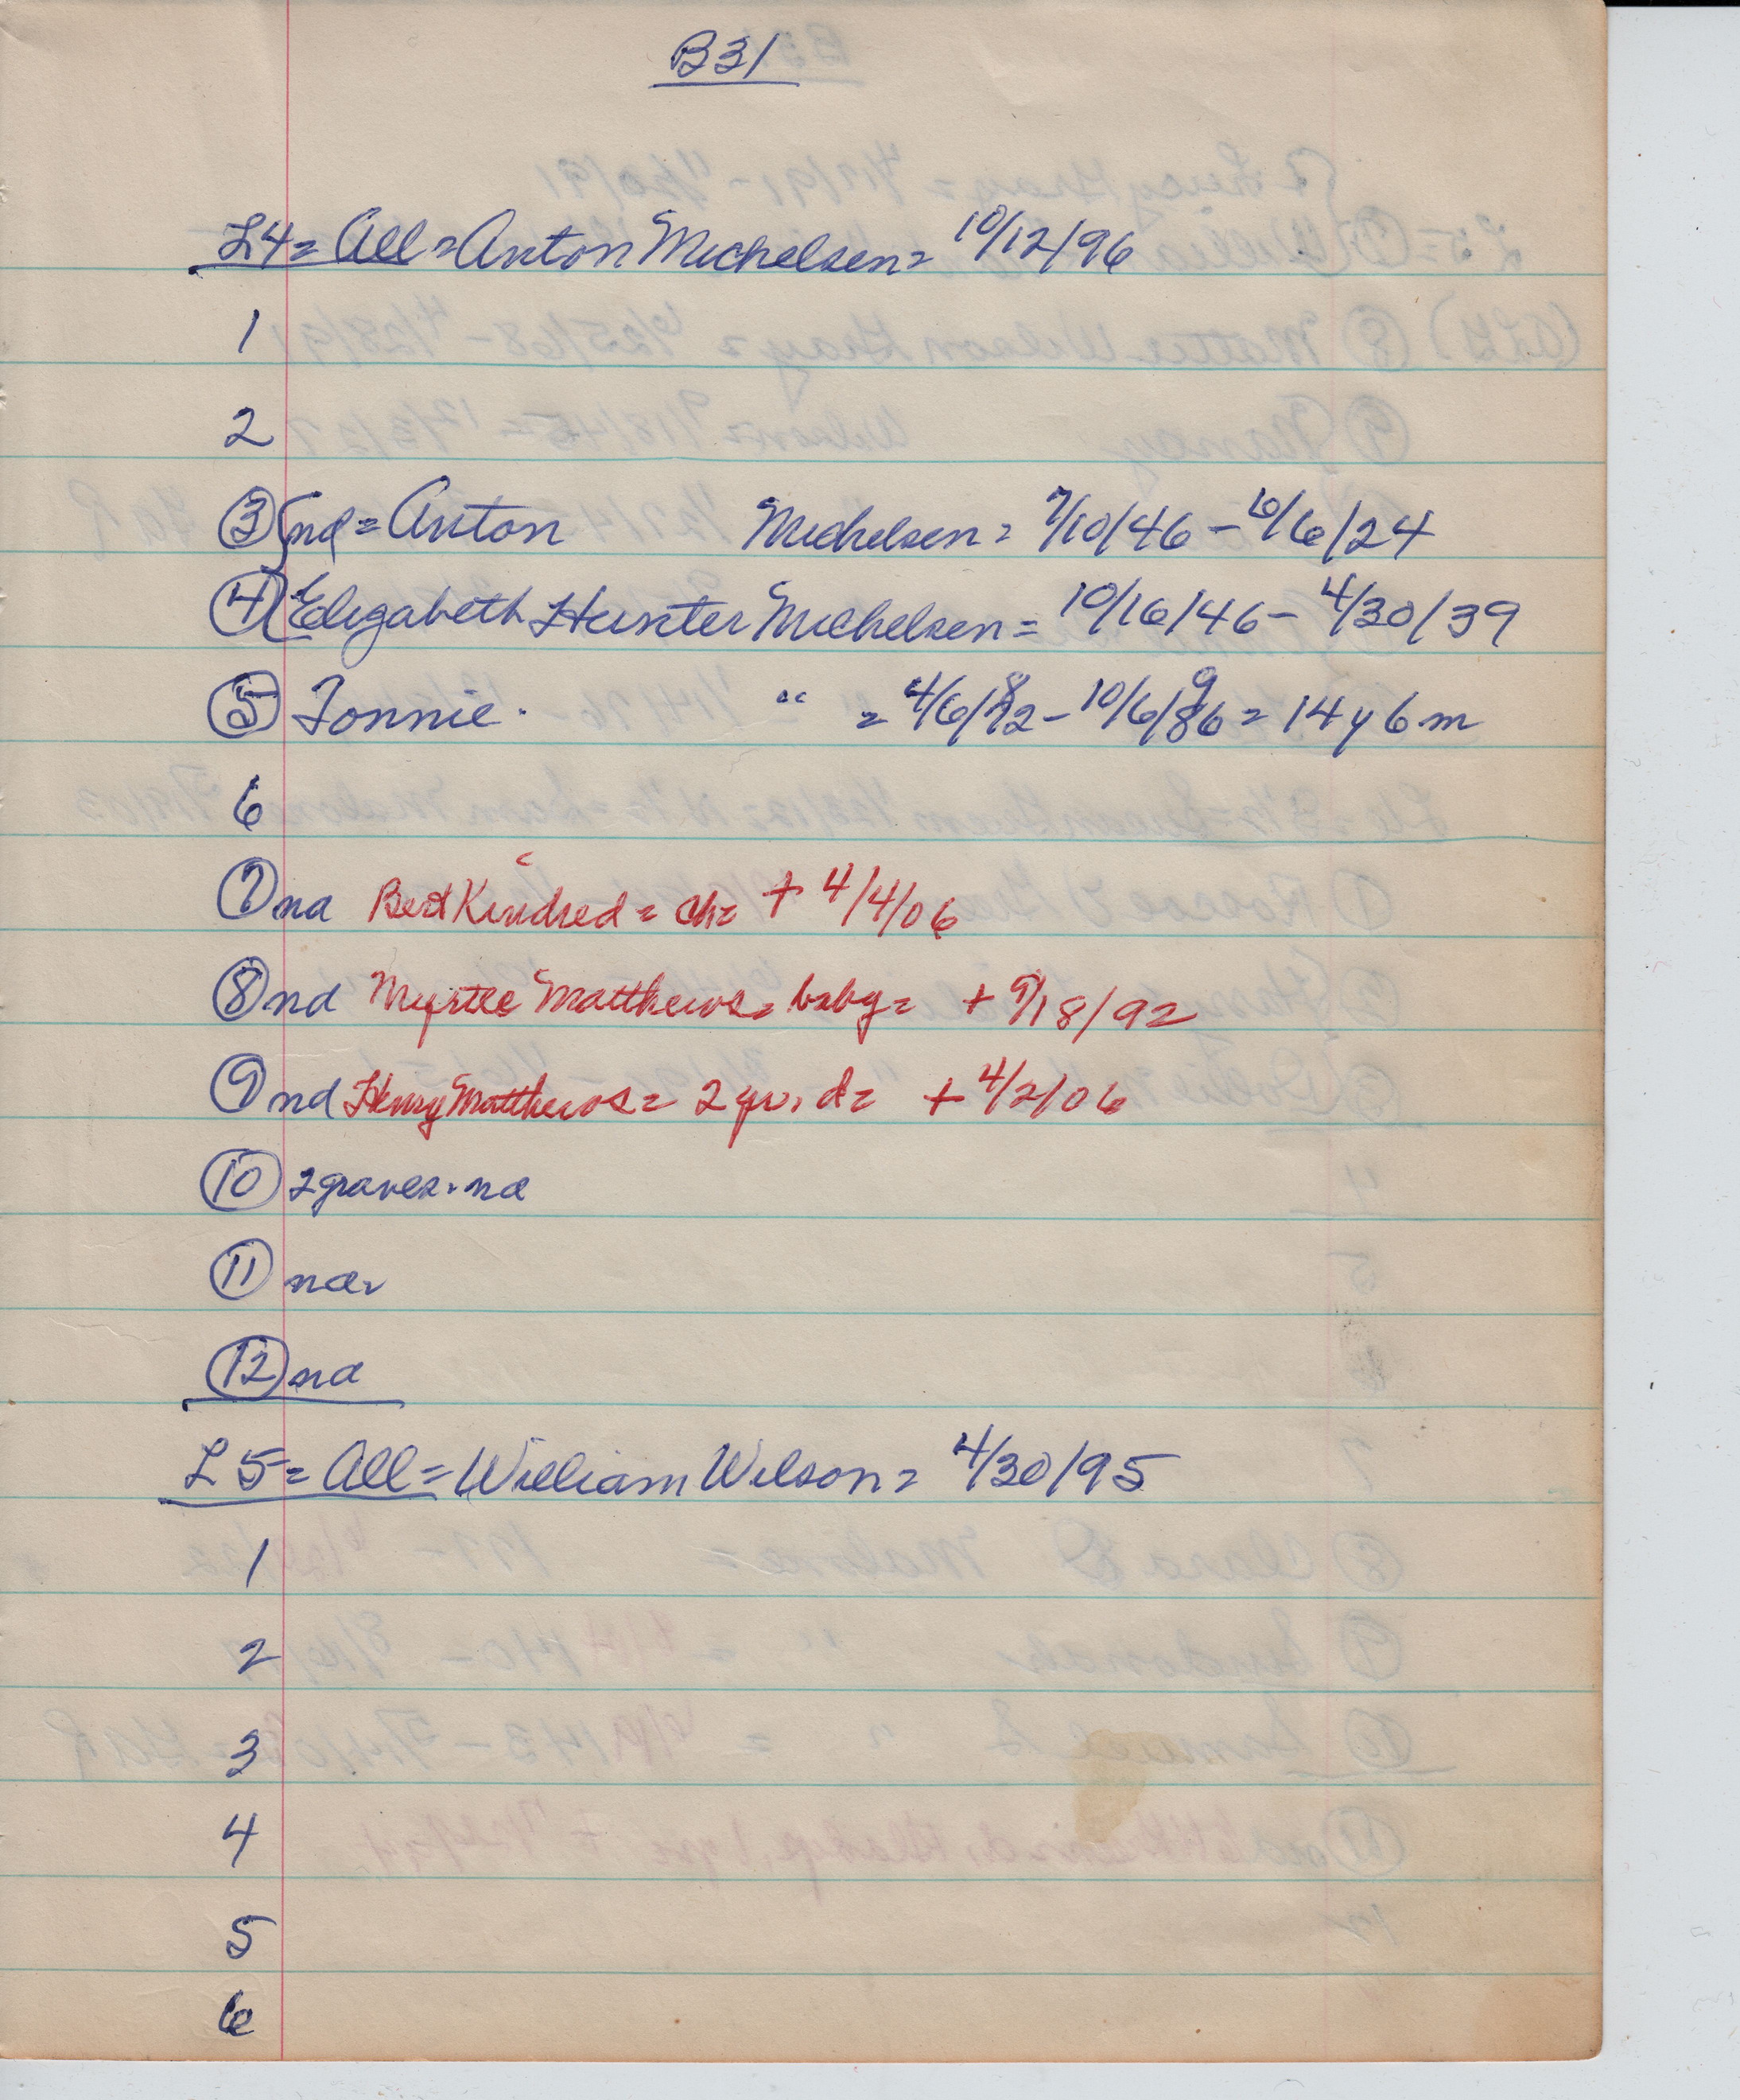 B31
L4= All = Anton Michelsen = 10/12/96
1
2
③ nd = Anton Michelsen = 7/10/46 - 10/6/24
④ Elizabeth Hunter Michelsen = 10/16/46 - 4/30/39
⑤ Tonnie. " = 4/6/82 - 10/6/96 = 14y 6m
6
⑦ nd Bert Kindred = ch = + 4/4/06
⑧ nd Myrtle Matthews = baby = + 9/18/92
⑨ nd Henry Matthews = 2 yr. d = + 4/2/06
⑩ 2 graves. nd
⑪ nd.
⑫ nd
L5 = All = William Wilson = 4/30/95
1
2
3
4
5
6